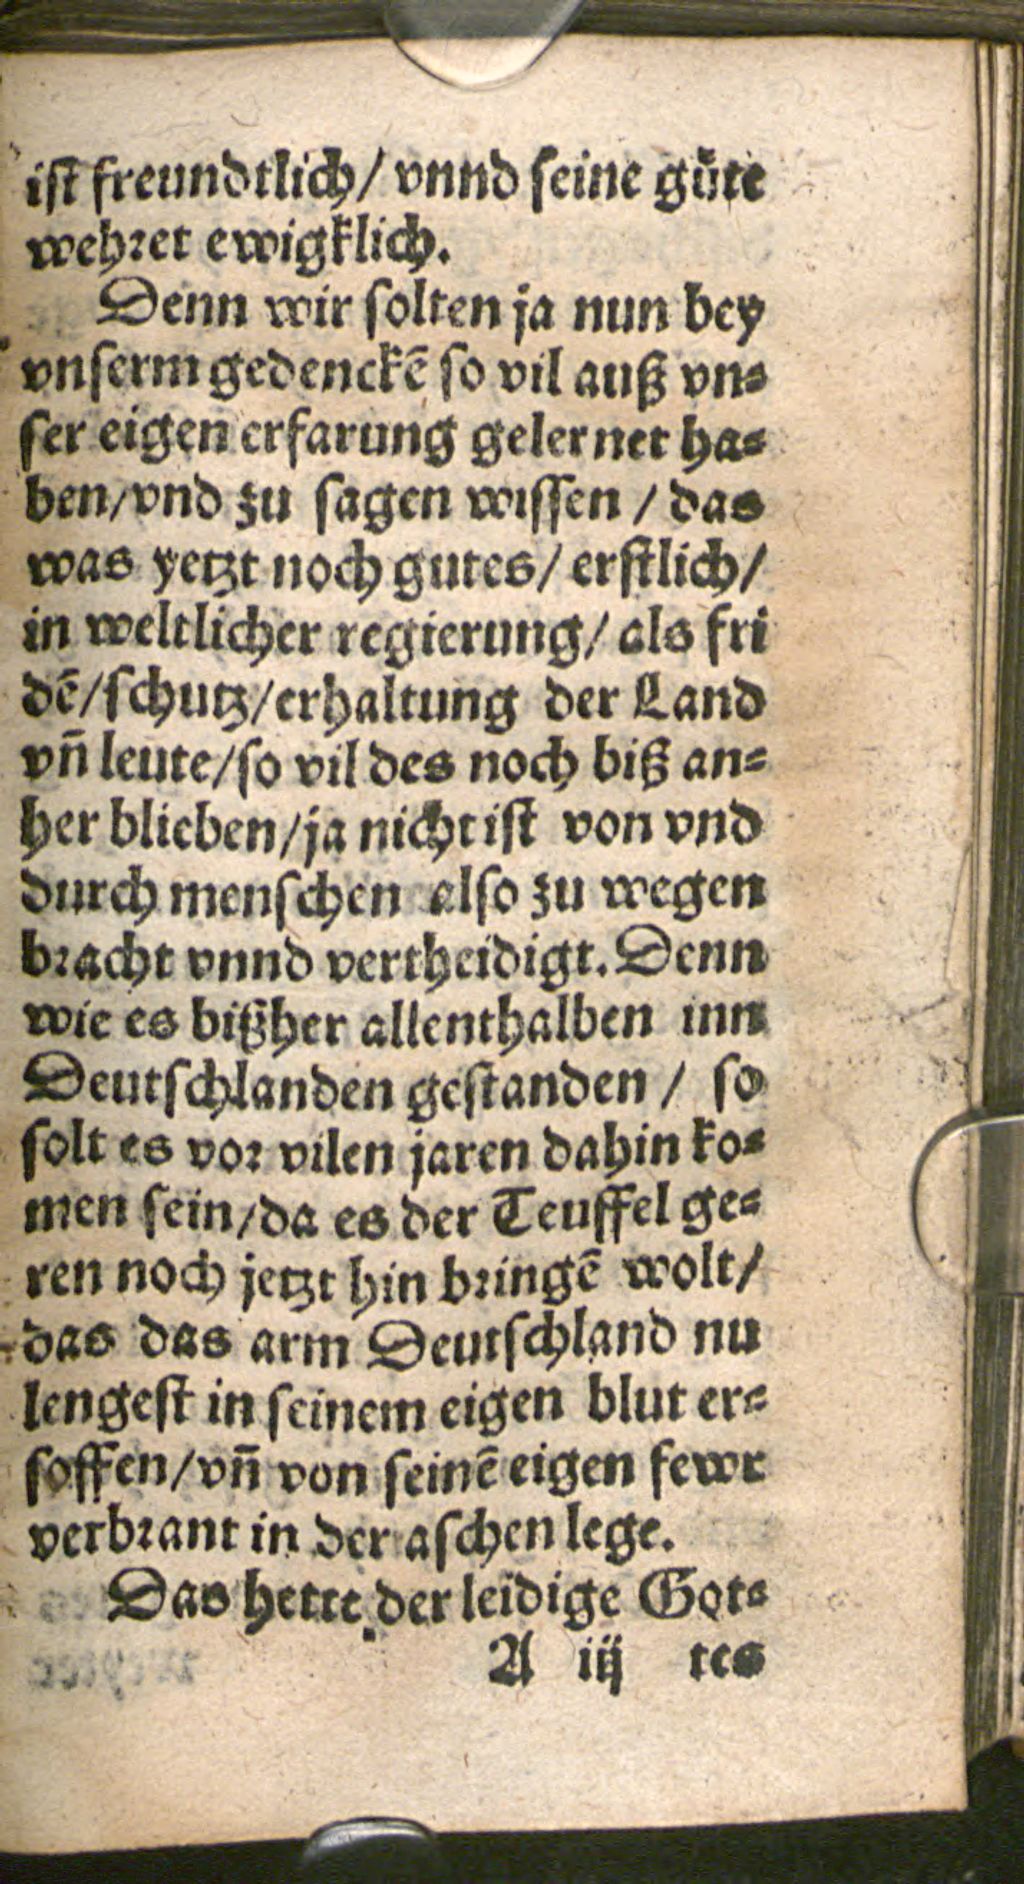 ist freundtlich/ vnnd seine güte
wehret ewigklich.
Denn wir solten ja nun bey
vnserm gedenckē so vil auß vn⸗
ser eigen erfarung gelernet ha⸗
ben/vnd zu sagen wissen / das
was yetzt noch gutes/ erstlich/
in weltlicher regierung/ als fri
dē/schutz/erhaltung der Land
vñ leute/so vil des noch biß an⸗
her blieben/ja nicht ist von vnd
durch menschen also zu wegen
bracht vnnd vertheidigt. Denn
wie es bißher allenthalben inn
Deutschlanden gestanden / so
solt es vor vilen jaren dahin ko⸗
men sein/da es der Teuffel ge⸗
ren noch jetzt hin bringē wolt/
das das arm Deutschland nu
lengest in seinem eigen blut er⸗
soffen/vñ von seinē eigen fewr
verbrant in der aschen lege.
Das hette der leidige Got⸗
A iij tes